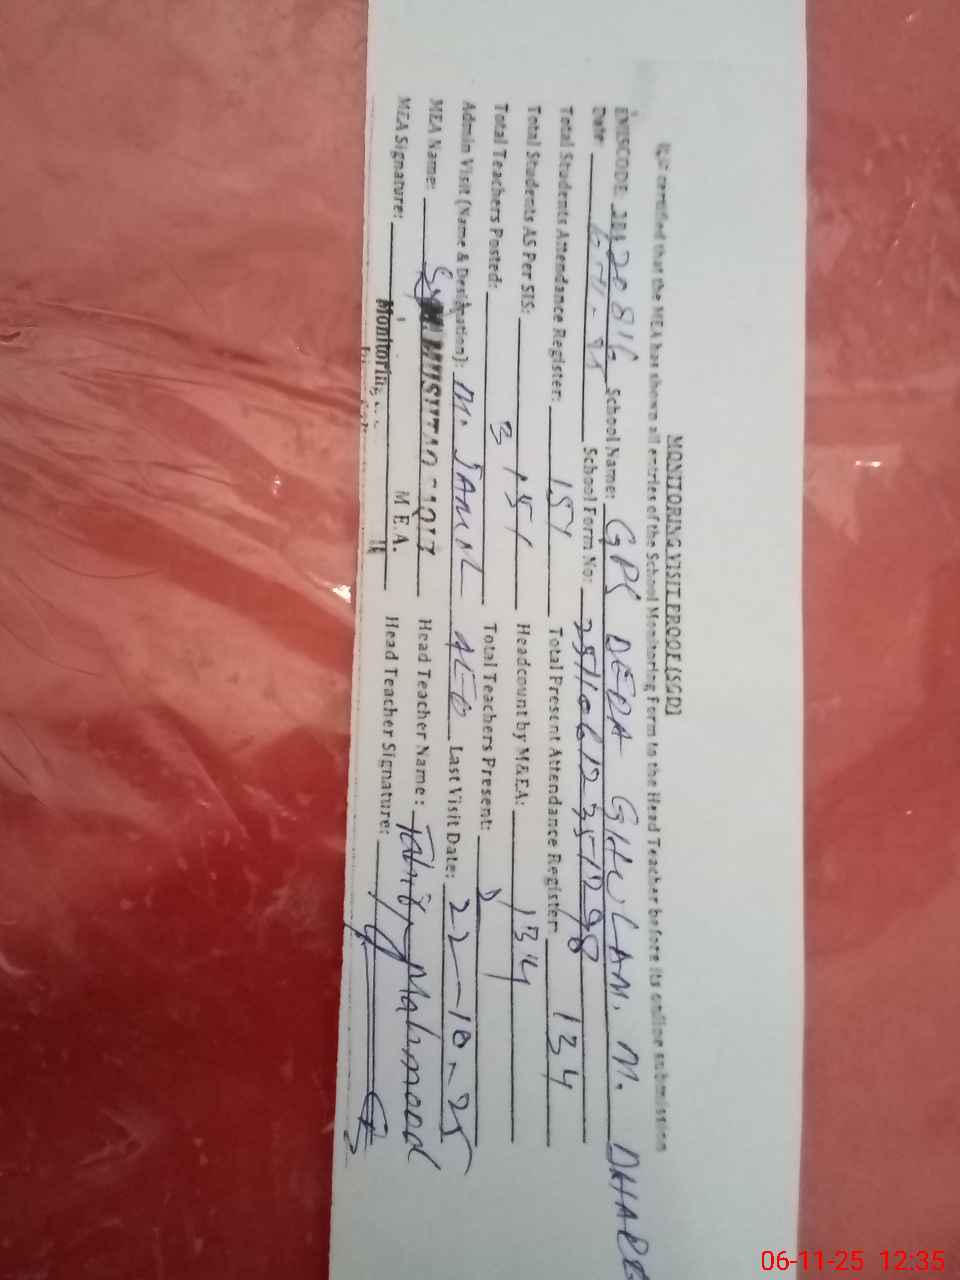 MONITORING VISIT PROOF (SGD)
It is certified that the MEA has shown all entries of the School Monitoring Form to the Head Teacher before its online submission
EMISCODE: 20816 School Name: GPS DERA GHULAM. M. DHA
Date: 6-11-25 School Form No:
Total Students Attendance Register: 151 Total Present Attendance Register: 134
Total Students AS Per SIS: 151 Headcount by M&EA: 134
Total Teachers Posted: 3 Total Teachers Present:
Admin Visit (Name & Designation): M. JAMIL AEO Last Visit Date: 22-10-25
MEA Name: MUSHTAQ Head Teacher Name: Mahmood
MEA Signature: M.E.A. Head Teacher Signature:
Monitoring
06-11-25 12:35